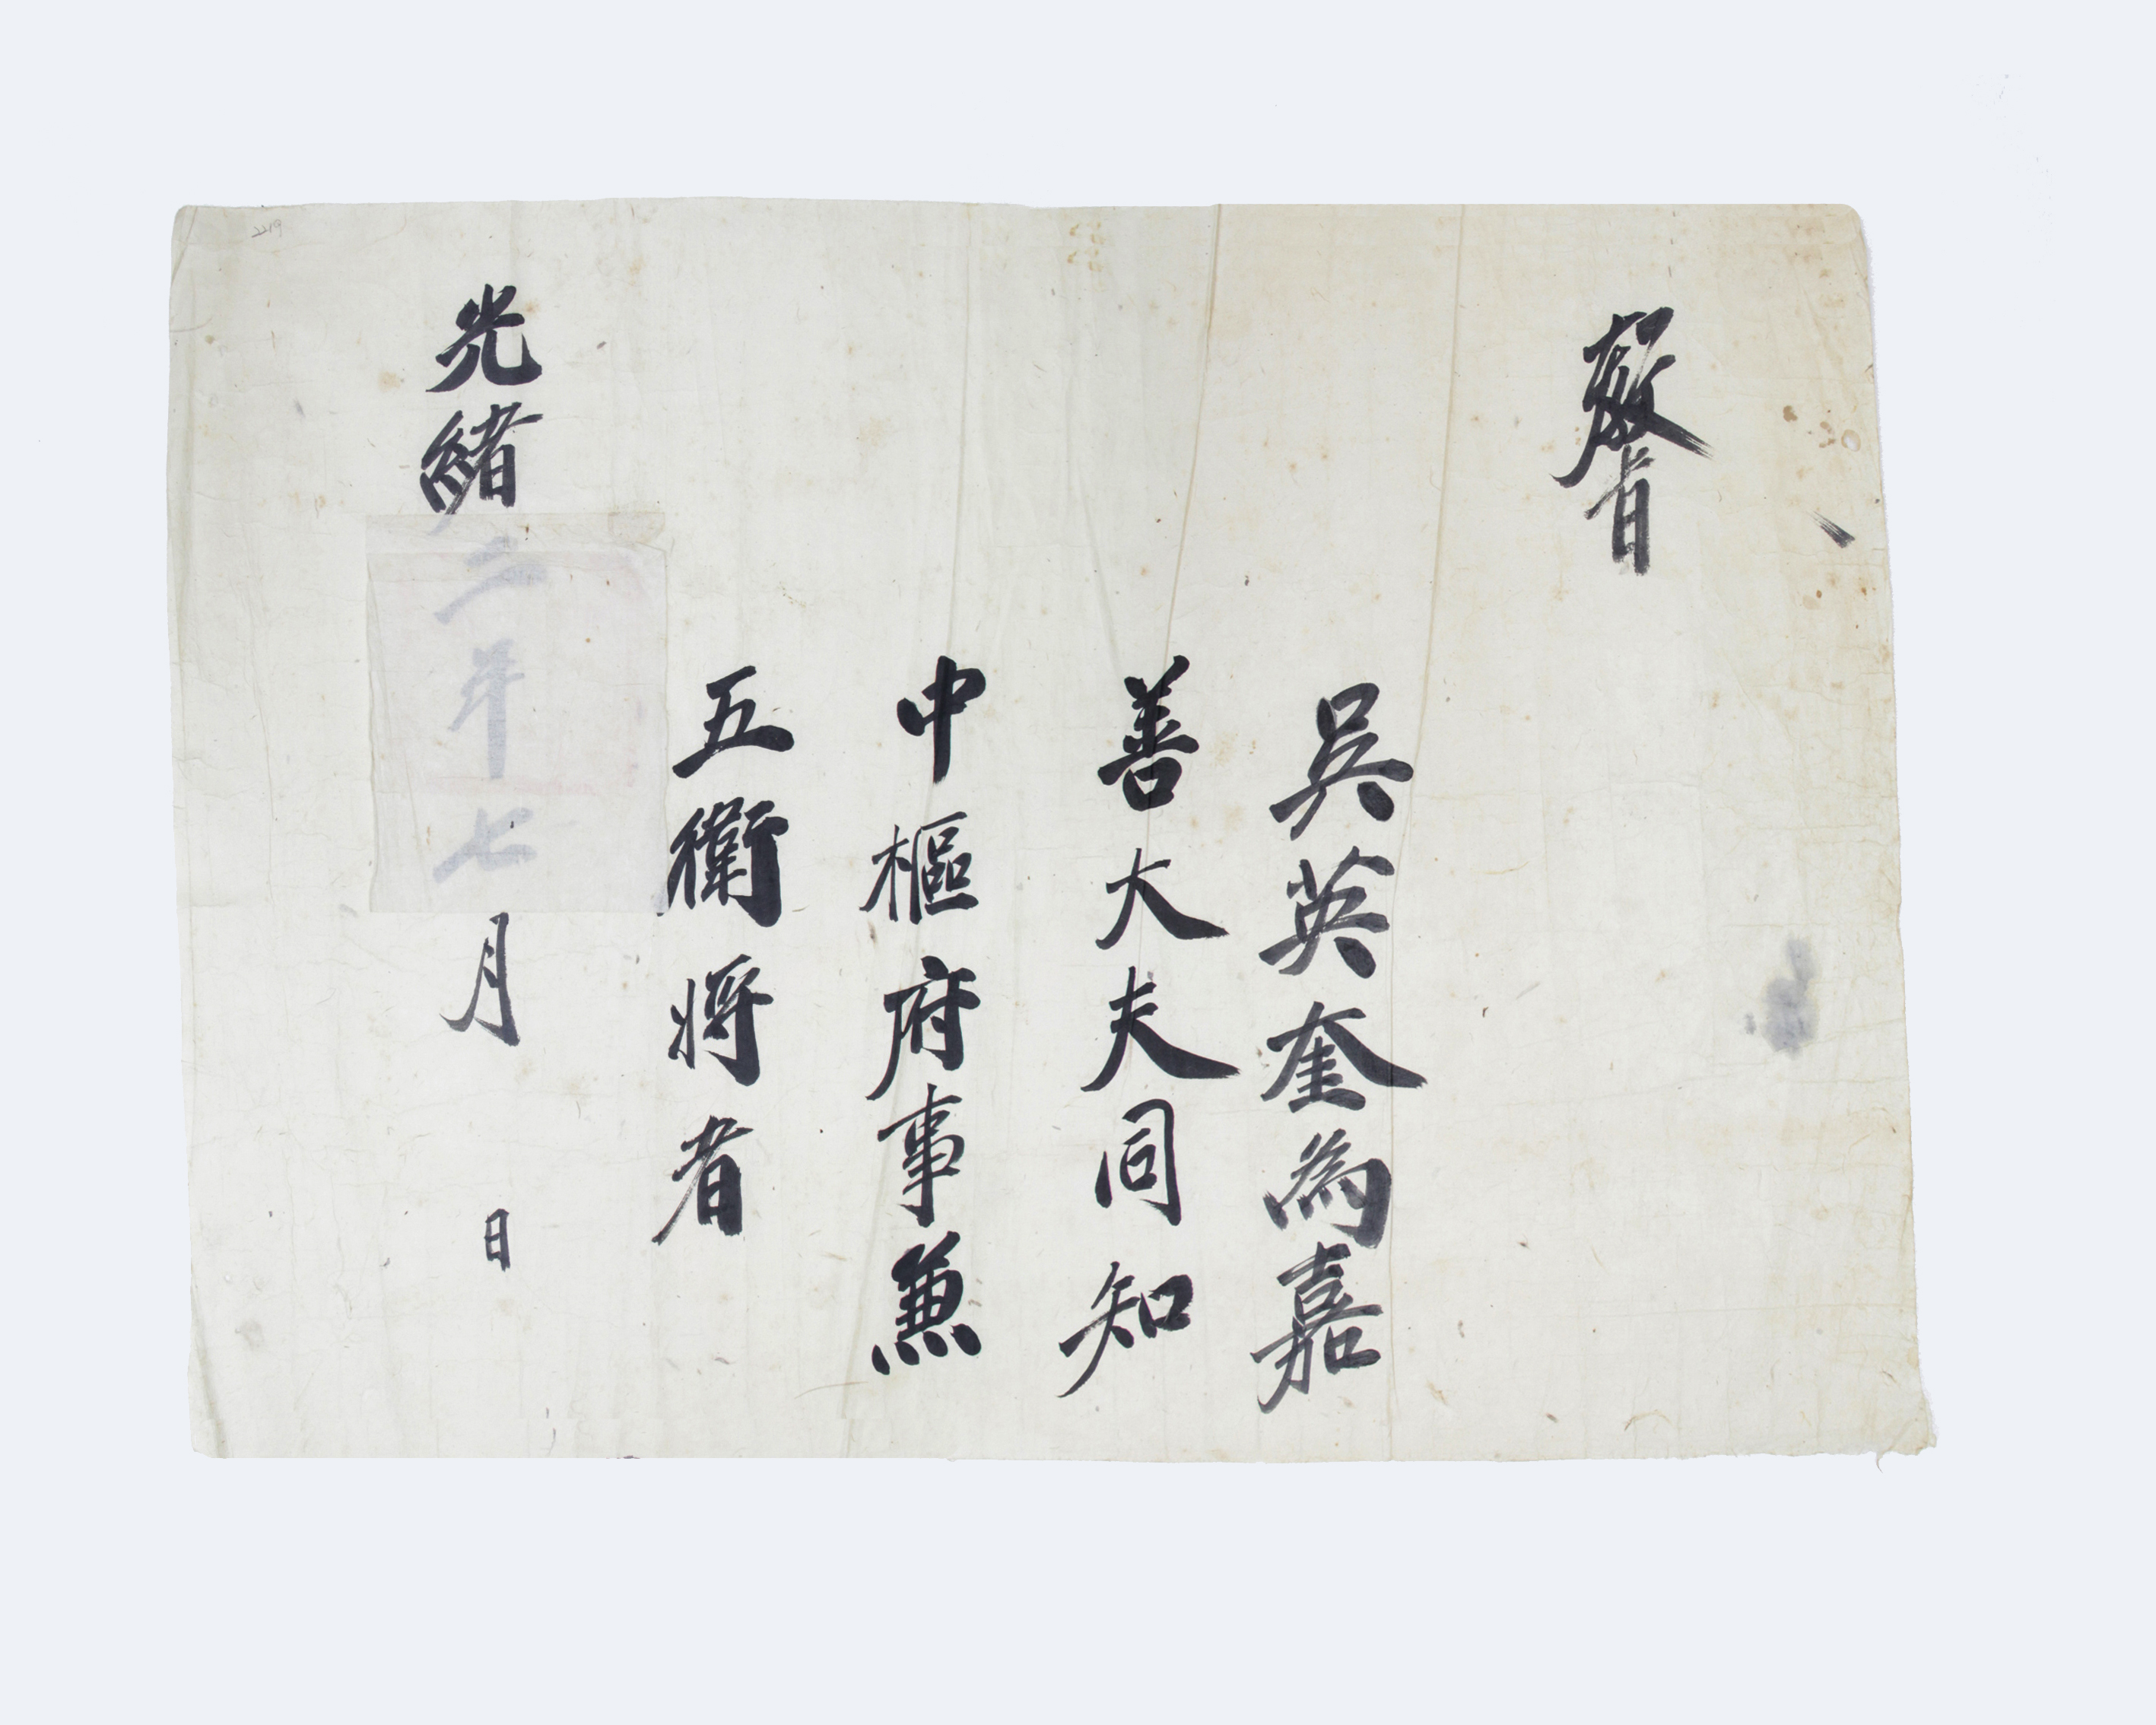 敎旨
吳英奎為嘉
善大夫同知
中樞府事兼
五衛將者
光緖二年七月 日